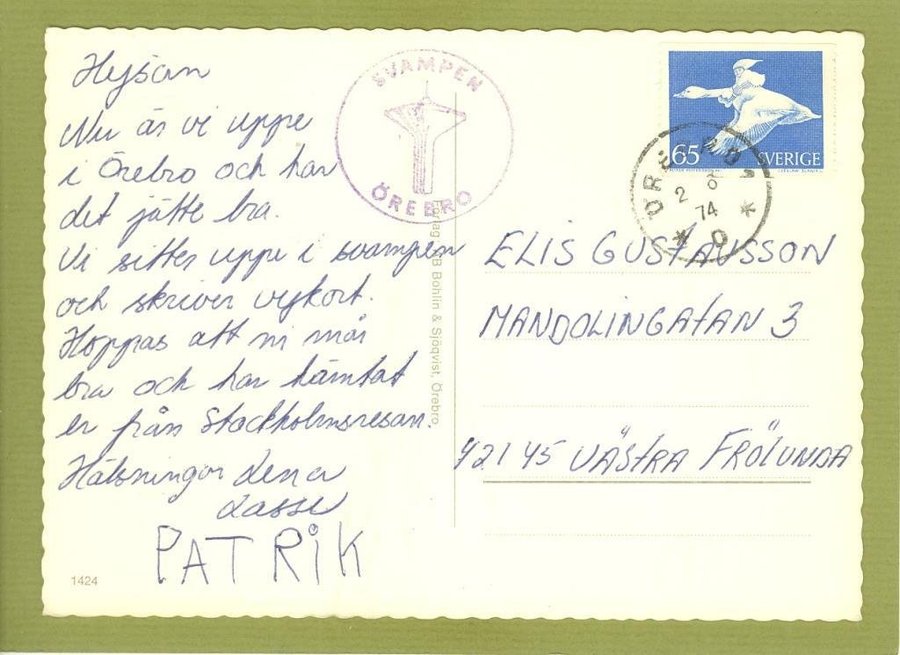 Hejsan
Nu är vi uppe
i Örebro och har
det jätte bra.
Vi sitter uppe i svampen
och skriver vykort.
Hoppas att ni mår
bra och har hämtat
er från Stockholmsresan.
Hälsningar Lena
Lasse
PATRIK
1424
SVAMPEN
ÖREBRO
Förlag AB Bohlin & Sjöqvist, Örebro.
65 SVERIGE
ÖREBRO 1
2 8
74
ELIS GUSTAVSSON
MANDOLINGATAN 3
421 45 VÄSTRA FRÖLUNDA